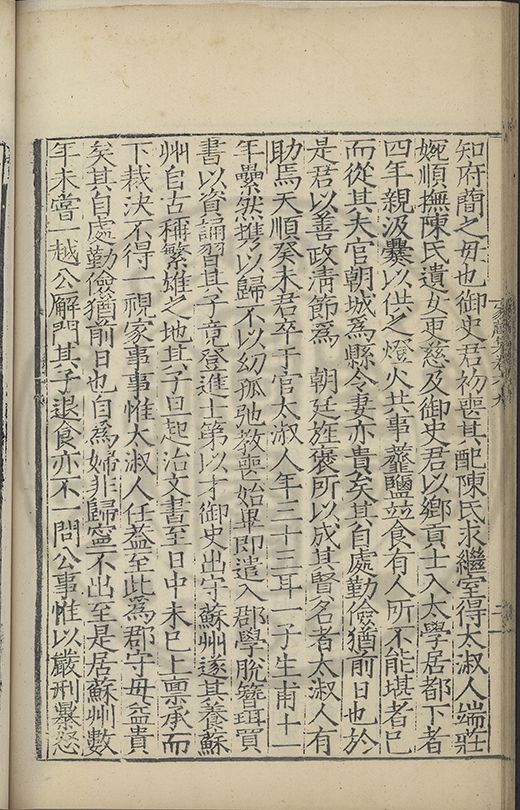 知府簡之母也御史君初喪其配陳氏求繼室得太淑人端莊
婉順撫陳氏遺女更慈及御史君以鄉貢士入太學居都下者
四年親汲爨以供之燈火共事虀鹽並食有人所不能堪者已
而從其夫官朝城為縣令妻亦貴矣其自處勤儉猶前日也於
是君以善政淸節為 朝廷旌褒所以成其賢名者太淑人有
助焉天順癸未君卒于官太淑人年三十三耳一子生甫十一
年纍然携以歸不以幼孤弛教喪始畢即遣入郡學脫簪珥買
書以資誦習其子竟登進士第以才御史出守蘇州遂其養蘇
州自古稱繁雄之地其子旦起治文書至日中未已上禀承而
下裁決不得一視家事事惟太淑人任益至此為郡守母益貴
矣其自處勤儉猶前日也自為婦非歸寧不出至是居蘇州數
年未嘗一越公解門其子退食亦不一問公事惟以嚴刑暴怒